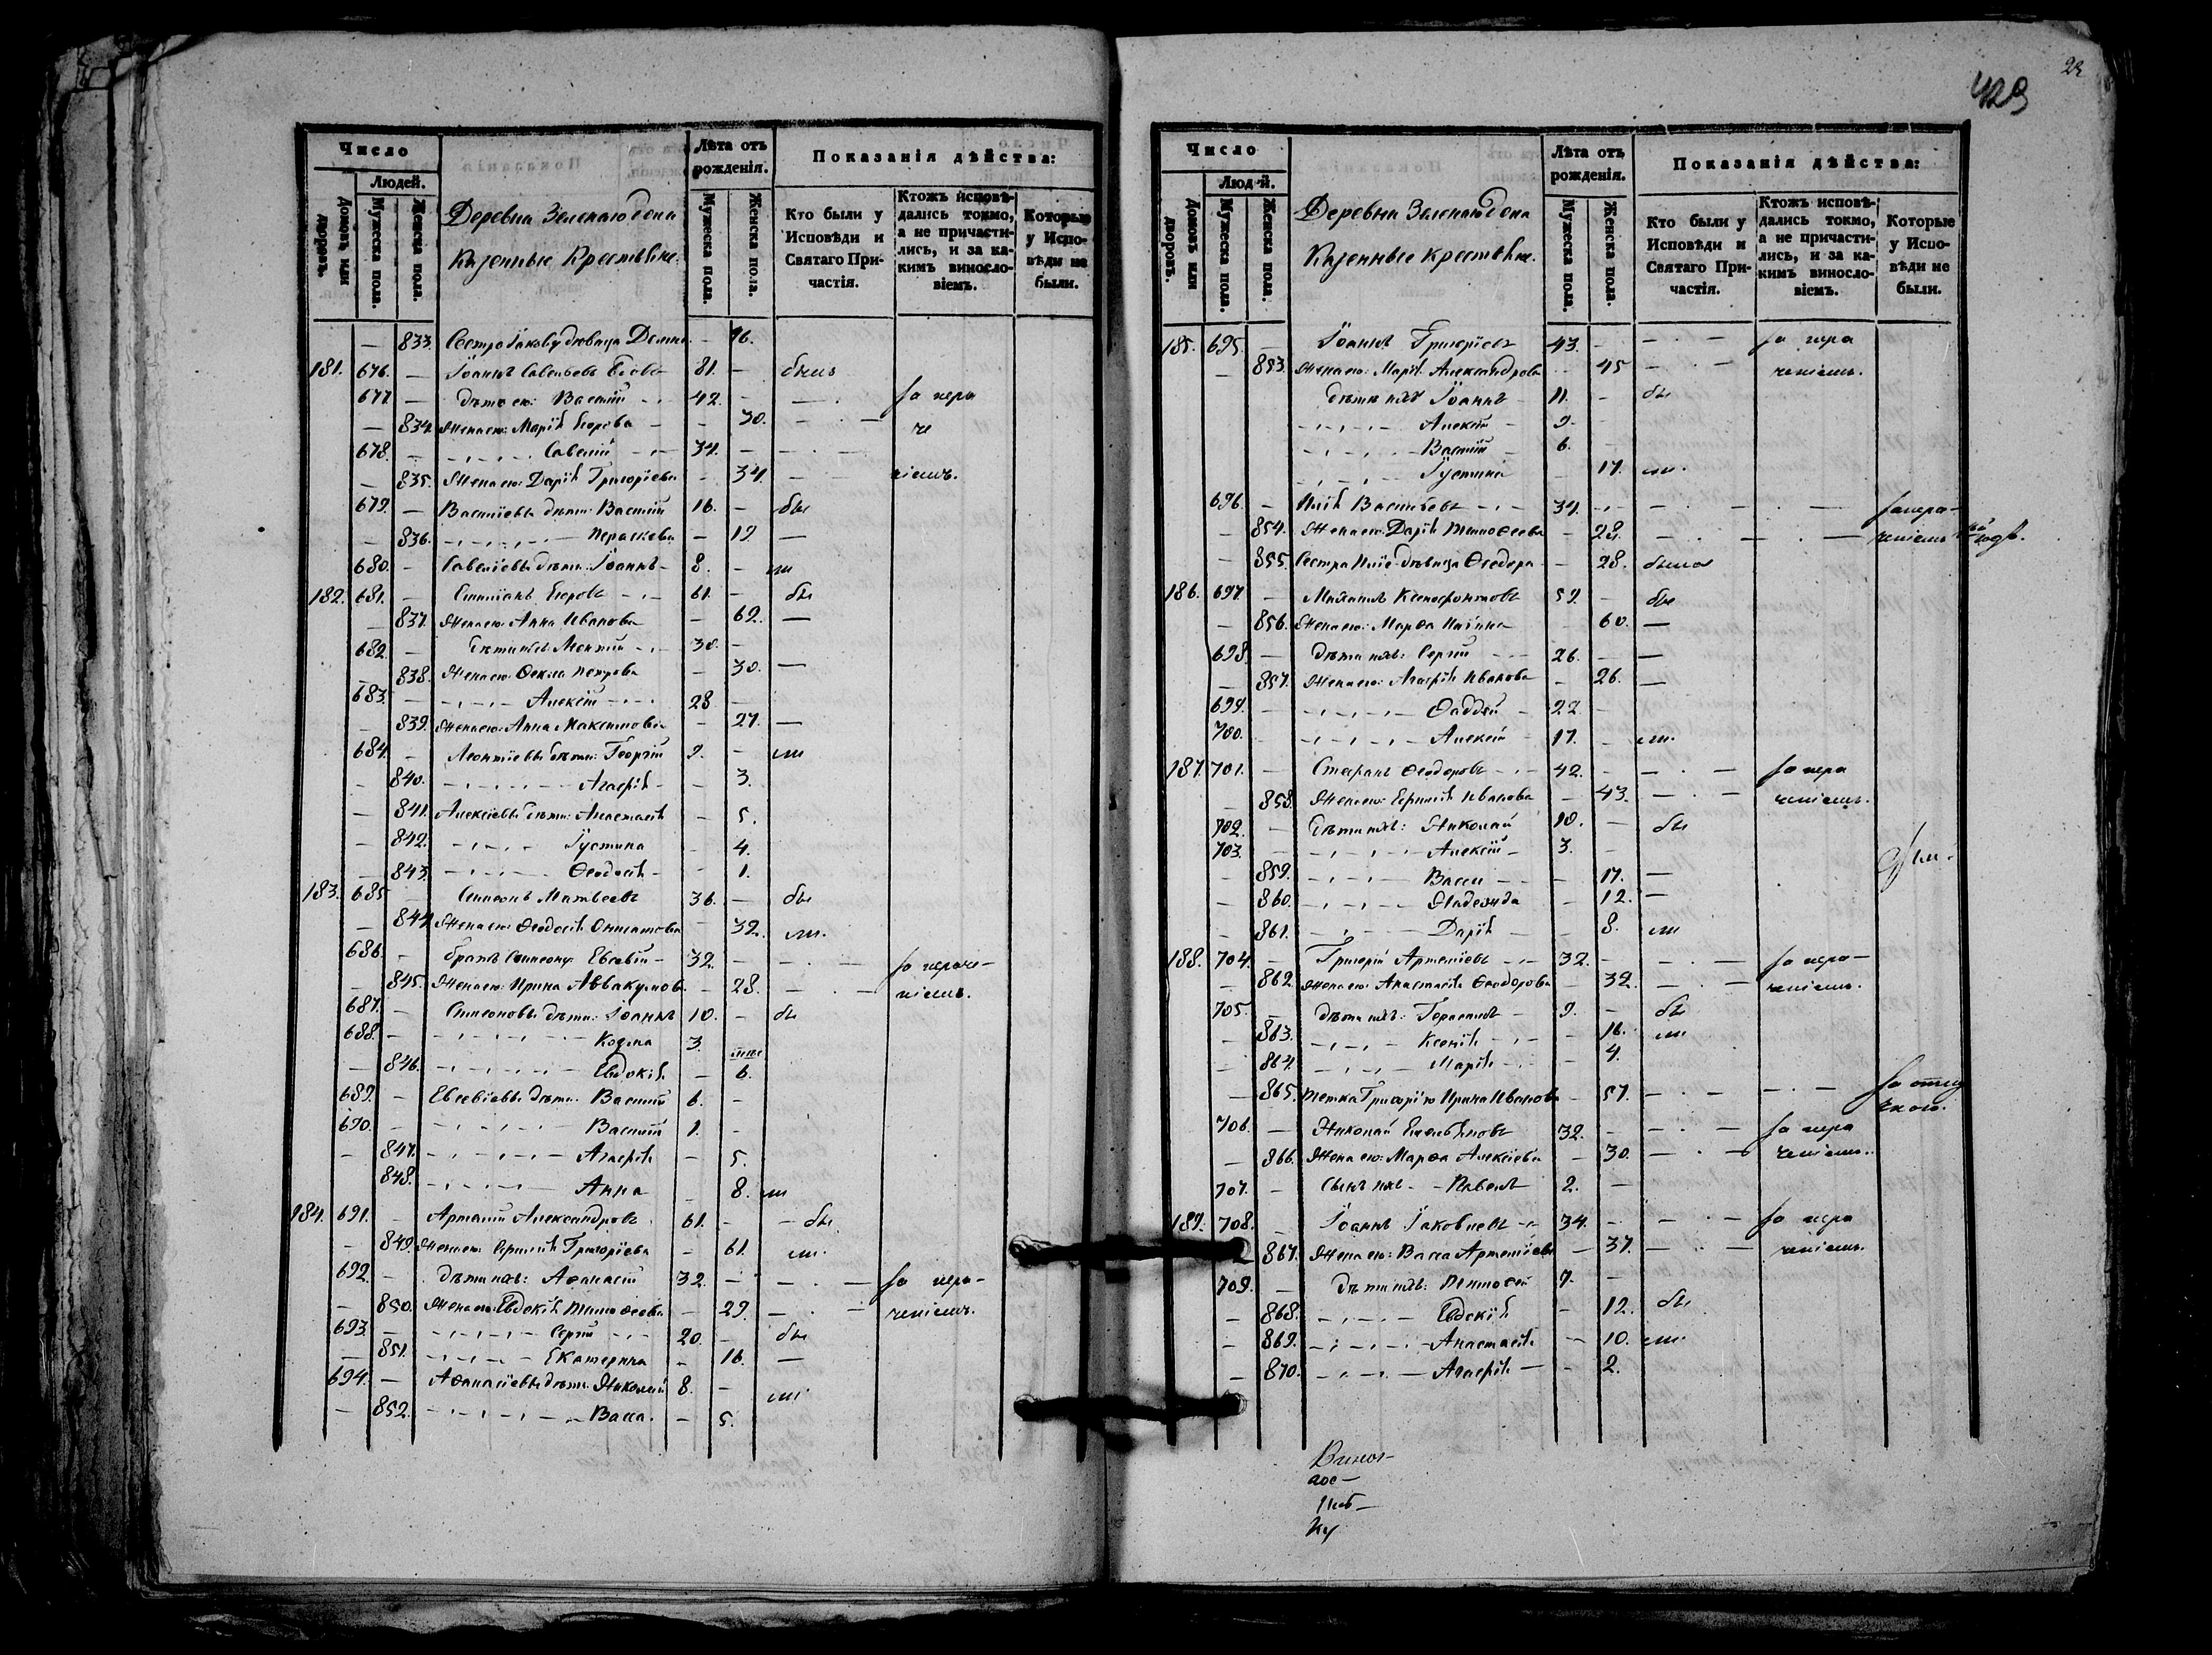 Число
Людей.
Домовъ или дворовъ.
Мужеска пола.
Женска пола.
Деревня
Казенные Крестьяне.
Лѣта отъ рожденія.
Мужеска пола.
Женска пола.
Показанія дѣйства:
Кто были у Исповѣди и Святаго При-
частія.
Ктожъ исповѣ-
дались токмо,
а не причасти-
лись, и за ка-
кимъ винносло-
віемъ.
Которые
у Испо-
вѣди не
были.
— 833. Сестра Іакову дѣвица Домна - 46.
181. 676. — Іоаннъ Савельевъ 81. -
677. — дѣти ею: Василій 42. - за нера
— 834. Жена ею: Марія Егорова - 30. че
678. — Савелій 34. -
— 835. Жена ею: Дарія Григоріева - 34. ніемъ.
679. — Василіевы дѣти: Василій 16. - бы
— 836. Параскева - 19. —
680. — Савеліевы дѣти: Іоаннъ 8. - ли
182. 681. — Егоровъ 61. - бы
— 837. Жена ею: Анна Иванова - 62. —
682. — дѣти ихъ: 30. -
— 838. Жена ею: Ѳекла Петрова - 30. —
683. — Алексій 28 -
— 839. Жена ею: Анна Максимова - 27. —
684. — Леонтіевы дѣти: Георгій 9. - ли
— 840. Агафія - 3.
— 841. Алексіевы дѣти: Анастасія - 5.
— 842. Іустина - 4.
— 843. Ѳеодосія - 1.
183. 685 — Симеонъ Матвеевъ 36. - бы
— 844. Жена ею: Ѳеодосія - 32. ли.
686. — братъ Симеону: Евсевій 32. - за нераче-
— 845. Жена ею: Ирина Аввакумова - 28. ніемъ.
687. — Симеоновы дѣти: Іоаннъ 10. - бы
688. — Козма 3.
— 846. Евдокія - 6.
689. — Евсевіевы дѣти: Василій 6. -
690. — Василій 1. -
— 847. Агафія - 5.
848. Анна - 8. ли
184. 691. — Александровъ 61. - бы
— 849. Жена ею: Григоріева - 61. ли.
692. — дѣти ихъ: Аѳанасій 32. - за нера-
— 850. Жена ею: Евдокія Тимоѳеева - 29. ченіемъ.
693. — Сергій 20. - бы
— 851. Екатерина - 16. —
694. — Аѳанасіевы дѣти: Николай 8. - ли
— 852. Васса. - 5.
23
429
Число
Людей.
Домовъ или дворовъ.
Мужеска пола.
Женска пола.
Деревня
Казенные крестьяне.
Лѣта отъ рожденія.
Мужеска пола.
Женска пола.
Показанія дѣйства:
Кто были у
Исповѣди и
Святаго При-
частія.
Ктожъ исповѣ-
дались токмо,
а не причасти-
лись, и за ка-
кимъ винносло-
віемъ.
Которые
у Испо-
вѣди не
были.
185. 695. — Іоаннъ Григоріевъ 43. - за нера
— 853. Жена ею: Марія Александрова - 45 ченіемъ.
дѣти ихъ Іоаннъ 11. - бы
Алексій 9. -
Василій 6. -
Іустина - 17. ли.
696. — Илія Васильевъ 34. - занера-
— 854. Жена ею: Дарія Тимоѳеева - 28. ченіемъ
— 855. Сестра Иліе дѣвица Ѳеодора - 28. была
186. 697. — Михаилъ Ксенофонтовъ 59. - бы
— 856. Жена ею: Марѳа - 60. —
698. — дѣти ихъ: Сергій 26. - —
— 857. Жена ею: Агафія Иванова - 26. —
699. — Ѳаддей 22 -
700. — Алексій 17. - ли.
187. 701. — Стефанъ Ѳеодоровъ 42. - за нера
— 858. Жена ею: Иванова - 43. ченіемъ.
702. — дѣти ихъ: Николай 10. - бы
703. — Алексій 3. -
— 859. Васса - 17. —
— 860. Надежда - 12. —
— 861. Дарія - 8. ли
188. 704. — Григорій Артеміевъ 32. - за нера-
— 862 Жена ею: Анастасія Ѳеодорова - 32. ченіемъ.
705. — дѣти ихъ: Герасимъ 9. - бы
— 863. Ксенія - 16. ли
— 864. Марія - 4.
— 865. Тетка Григорію Ирина Иванова - 57. за отлу
чкою.
706. — Николай Емельяновъ 32. - за нера
— 866. Жена ею: Марѳа Алексіева - 30. ченіемъ.
707. — сынъ ихъ Павелъ 2. -
189. 708. — Іоаннъ Іаковлевъ 34. - за нера
— 867. Жена ею: Васса Артеміева - 37. ченіемъ.
709. — дѣти ихъ: Тимоѳей 7. -
— 868. Евдокія - 12. бы
— 869. Анастасія - 10. ли.
— 870. Агафія - 2.